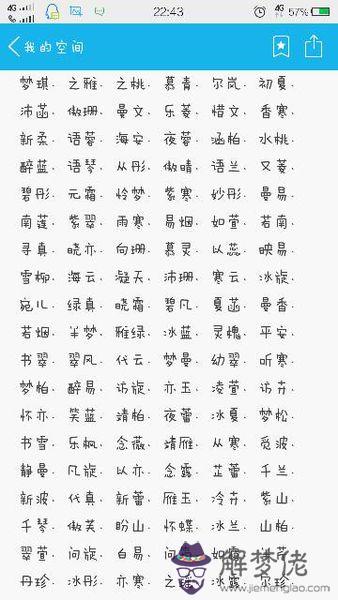 4G 22:43 4G 57%
我的空间
梦琪. 之雅. 之桃. 慕青. 尔岚. 初夏.
沛菡. 傲珊. 曼文. 乐菱. 惜文. 香寒.
新柔. 语蓉. 海安. 夜蓉. 涵柏. 水桃.
醉蓝. 语琴. 从彤. 傲晴. 语兰. 又菱.
碧彤. 元霜. 怜梦. 紫寒. 妙彤. 曼易.
南莲. 紫翠. 雨寒. 易烟. 如萱. 若南.
寻真. 晓亦. 向珊. 慕灵. 以蕊. 映易.
雪柳. 海云. 凝天. 沛珊. 寒云. 冰旋.
宛儿. 绿真. 晓霜. 碧凡. 夏菡. 曼香.
若烟. 半梦. 雅绿. 冰蓝. 灵槐. 平安.
书翠. 翠风. 代云. 梦曼. 幼翠. 听寒.
梦柏. 醉易. 访旋. 亦玉. 凌萱. 访卉.
怀亦. 笑蓝. 靖柏. 夜蕾. 冰夏. 梦松.
书雪. 乐枫. 念薇. 靖雁. 从寒. 觅波.
静曼. 凡旋. 以亦. 念露. 芷蕾. 千兰.
新波. 代真. 新蕾. 雁玉. 冷卉. 紫山.
千琴. 傲芙. 盼山. 怀蝶. 冰兰. 山柏.
翠萱. 问旋. 白易. 问
丹珍. 冰彤. 亦寒. 之瑶. 冰露. 尔珍.
解梦佬
www.jiemenglao.com